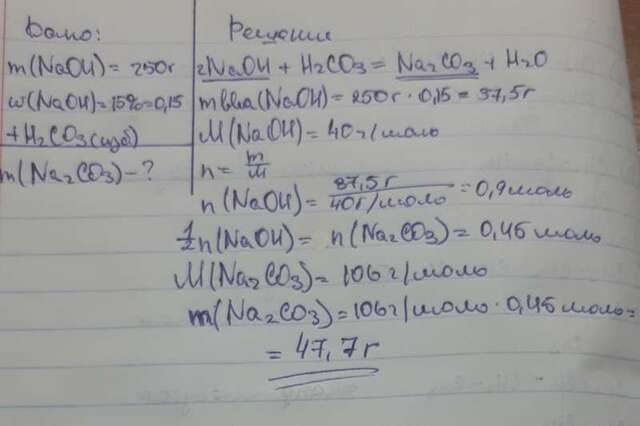 Дано:
m(NaOH) = 250г
w(NaOH)=15%=0,15
+H₂CO₃(изб)
m(Na₂CO₃) - ?
Решение
2NaOH + H₂CO₃ = Na₂CO₃ + H₂O
mв-ва(NaOH)=250г · 0,15 = 37,5г
M(NaOH)= 40г/моль
n = m/M
n(NaOH)= 37,5г/40г/моль = 0,9моль
1/2n(NaOH)= n(Na₂CO₃)= 0,45моль
M(Na₂CO₃)= 106г/моль
m(Na₂CO₃)=106г/моль · 0,45моль=
= 47,7г